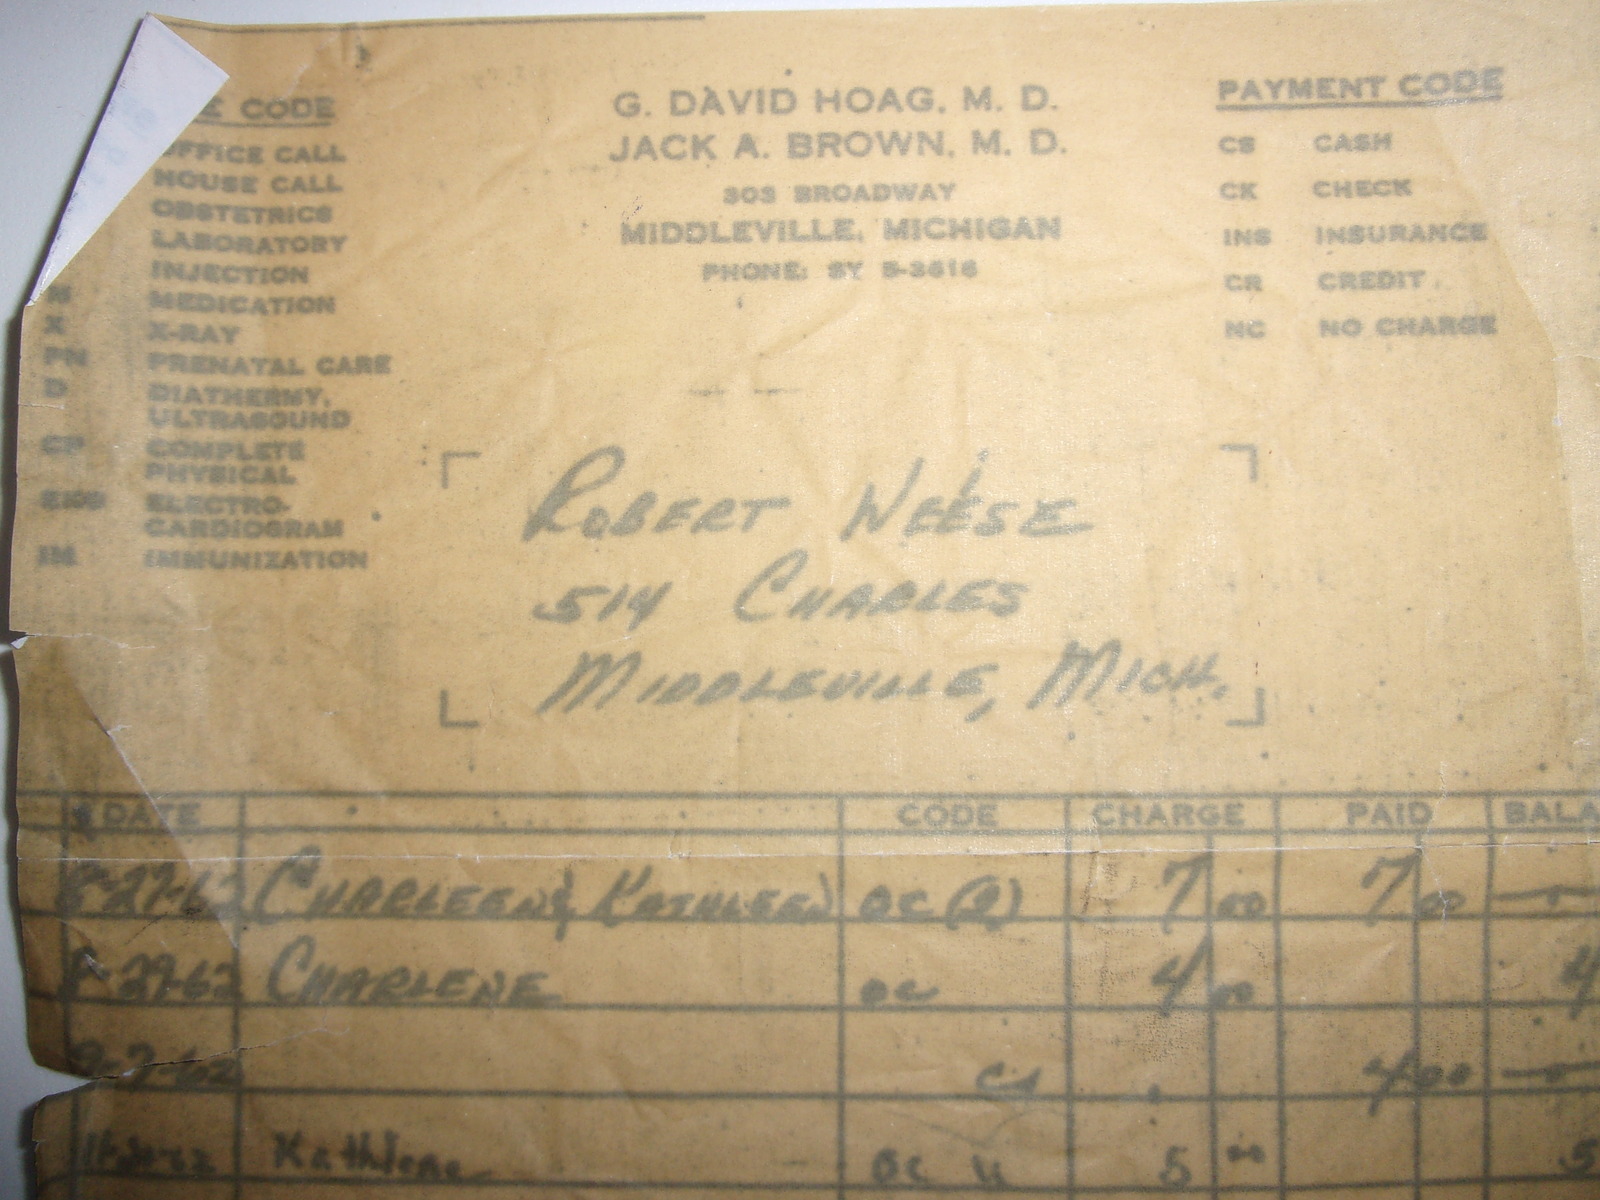 E CODE
OFFICE CALL
HOUSE CALL
OBSTETRICS
LABORATORY
INJECTION
M MEDICATION
X X-RAY
PN PRENATAL CARE
D DIATHERMY,
ULTRASOUND
CP COMPLETE
PHYSICAL
ELECTRO-
CARDIOGRAM
IM IMMUNIZATION
G. DAVID HOAG, M. D.
JACK A. BROWN, M. D.
303 BROADWAY
MIDDLEVILLE, MICHIGAN
PHONE: SY 5-3616
PAYMENT CODE
CS CASH
CK CHECK
INS INSURANCE
CR CREDIT
NC NO CHARGE
ROBERT NEESE
514 CHARLES
MIDDLEVILLE, MICH.
DATE CODE CHARGE PAID BALA
8-27-62 CHARLEEN & KATHLEEN OC (2) 7 00 7 00 —
8-29-62 CHARLENE OC 4 00 4
9-7-62 CS 4 00 —
Kathlene OC 5 00 5